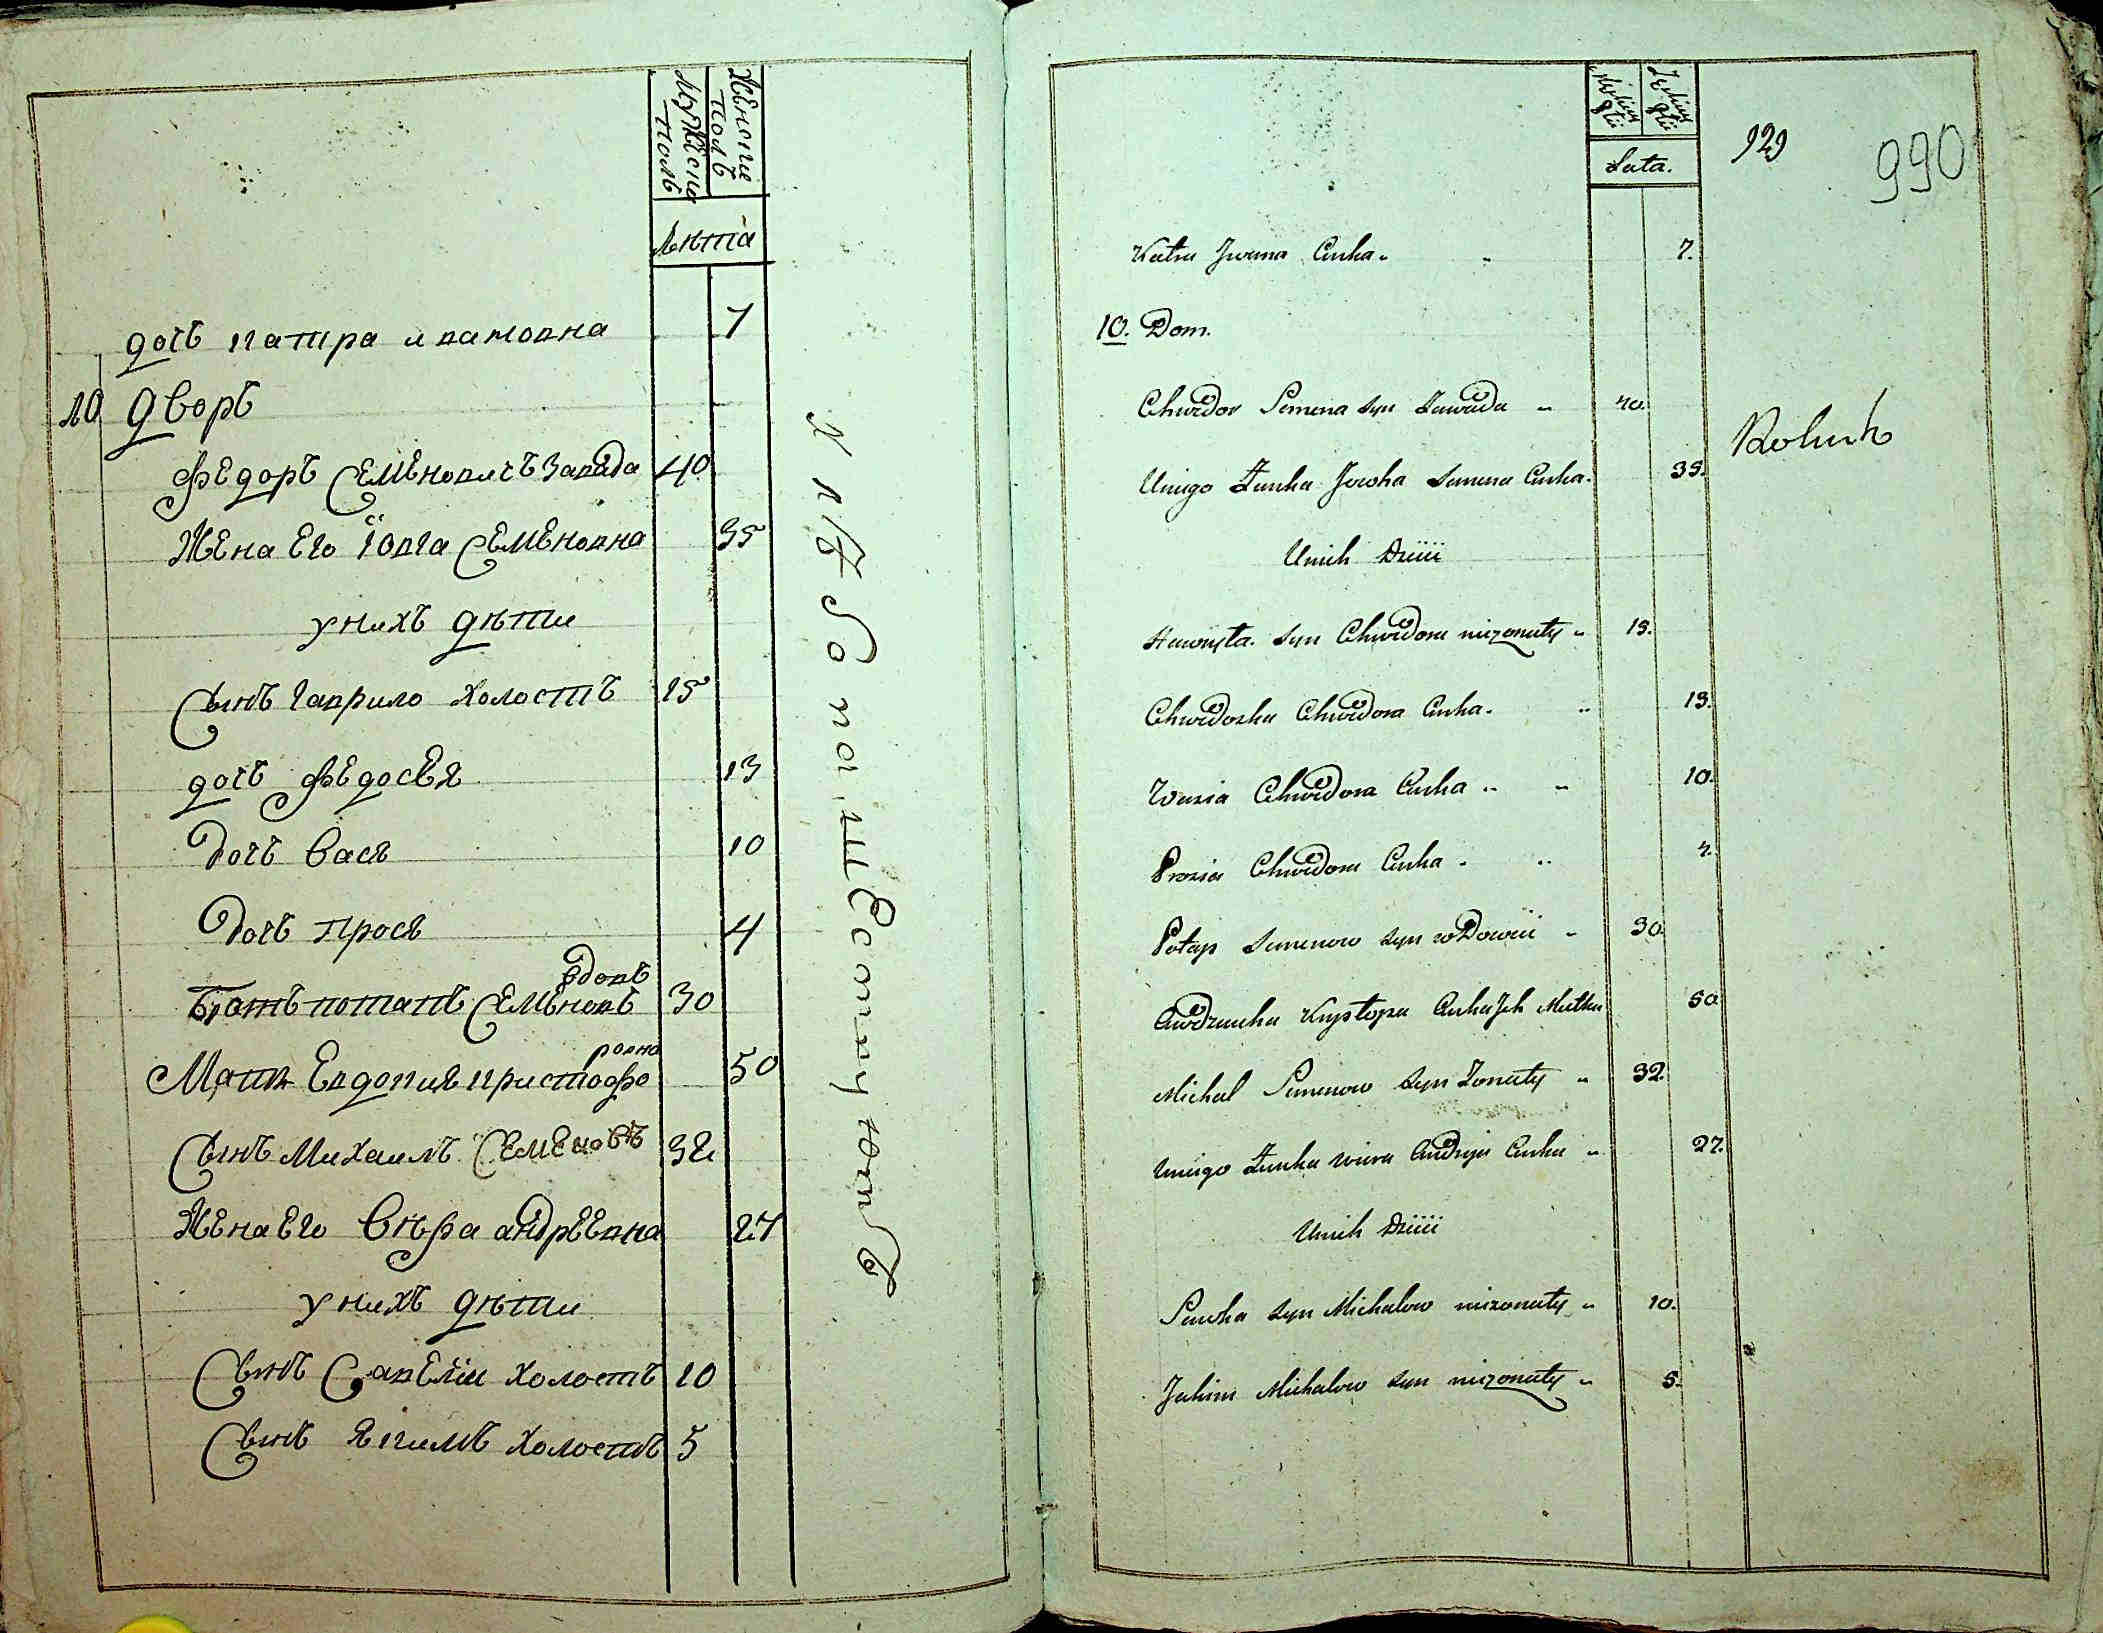 Женски полъ
Мужески полъ
Лѣта
дочъ катра ивановна 7
10 Дворъ
Федоръ Семеновичъ Завада 40
Жена Его Ювга Семеновна 35
у нихъ дѣти
Сынъ гаврило холостъ 15
дочъ Федосея 13
дочъ Вася 10
дочъ прося 4
вдовъ
Братъ потапъ Семеновъ 30
ровна
Мать Евдокия кристофо 50
Сынъ Михаилъ Семеновъ 32
Жена Его Вѣра андреевна 27
у нихъ дѣти
Сынъ Савелїи холостъ 10
Сынъ Якимъ холостъ 5
хлѣбопашествуютъ
Męskiey Płci
Żeńskiey Płci
Lata.
929
990
Katra Jwana Curka 7.
10. Dom.
Chwedor Semena syn Zawada 40.
Uniego Żunka Jewha Semena Curka. 35.
Unich Dzieci
Hawryło syn Chwedora nieżonaty 15.
Chwedoska Chwedora Curka. 13.
Wasia Chwedora Curka 10.
Prosia Chwedora Curka 4.
Potap Semenow syn wdowiec 30.
Awdzucha Krystopa Curka Jch Matka 50
Michal Semenow syn Żonaty 32.
Uniego Żunka Wiera Andryja Curka 27.
Unich Dzieci
Sawka syn Michałow nieżonaty 10.
Jakim Michałow syn nieżonaty 5.
Rolnik